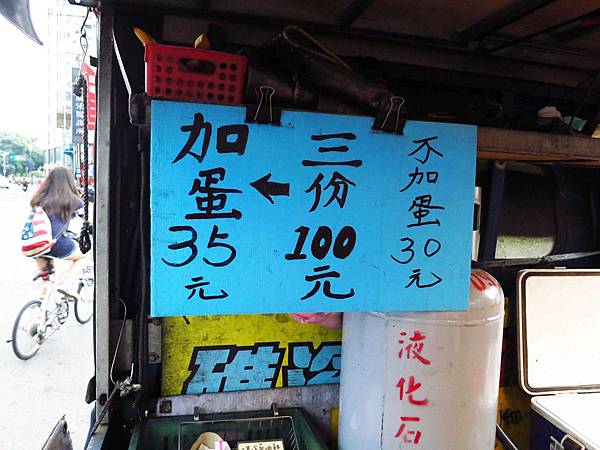 不加蛋30元
三份100元
←
加蛋35元
液化石